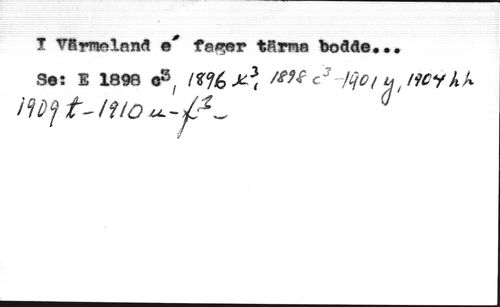 I Värmeland e´ fager tärma bodde...
Se: E 1898 c³, 1896 x³, 1898 c³ -1901 y, 1904 h h
1909 t - 1910 u - f³ -